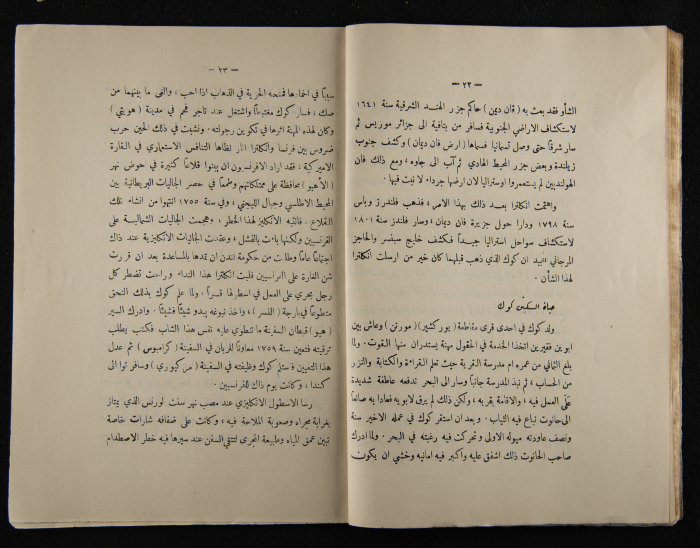 — ٢٢ —
الشأو فقد بعث به (ڤان ديمن) حاكم جزر الهند الشرقية سنة ١٦٤١
لاستكشاف الاراضي الجنوبية فسافر من بتافية الى جزائر موريس ثم
سار شرقاً حتى وصل تسمانيا فسماها (ارض فان ديمان) وكشف جنوب
زيلندة وبعض جزر المحيط الهادي ثم آب الى جاوه، ومع ذلك فان
الهولنديين لم يستعمروا اوستراليا لان ارضها جرداء لا نبت فيها.
واهتمت انكلترا بعد ذلك بهذا الامر، فذهب فلندرز وباس
سنة ١٧٩٨ ودارا حول جزيرة فان ديمان، وسار فلندز سنة ١٨٠١
لاستكشاف سواحل استراليا جيداً فكشف خليج سبنسر والحاجز
المرجاني بيد ان كوك الذي ذهب قبلهما كان خير من ارسلت انكلترا
لهذا الشأن.
حياة السكبتن كوك
ولد كوك في احدى قرى مقاطعة (يوركشير) (مورتن) وعاش بين
ابوين فقيرين اتخذا الخدمة في الحقول مهنة يستدران منها القوت. ولما
بلغ الثماني من عمره ام مدرسة القرية حيث تعلم القراءة والكتابة والنزر
من الحساب، ثم نبذ المدرسة جانباً وسار الى البحر تدفعه عاطفة شديدة
على العمل فيه، والاقامة بقربه، ولكن ذلك لم يرق لابويه فعادا به صانعاً
الى حانوت تباع فيه الثياب. وبعد ان استقر كوك في عمله الاخير سنة
ونصف عاودته ميوله الاولى وتحركت فيه رغبته في البحر. ولما ادرك
صاحب الحانوت ذلك اشفق عليه واكبر فيه امانيه وخشي ان يكون
— ٢٣ —
سبباً في اخمادها فمنحه الحرية في الذهاب اذا احب، والغى ما بينهما من
صك، فسار كوك مغتبطاً واشتغل عند تاجر فحم في مدينة (هويتبي)
وكان لهذه المهنة اثرها في تكوين رجولته. ونشبت في ذلك الحين حرب
ضروس بين فرنسا وانكلترا اثار لظاها التنافس الاستعماري في القارة
الاميركية، فقد اراد الافرنسيون ان يبنوا قلاعاً كثيرة في حوض نهر
(الأهيو) محافظة على ممتلكاتهم وطمعاً في حصر الجاليات البريطانية بين
المحيط الاطلسي وجبال الليجني، وفي سنة ١٧٥٥ انتهوا من انشاء تلك
القلاع. فانتبه الانكليز لهذا الخطر، وهجمت الجاليات الشمالية على
الفرنسيين ولكنها باءت بالفشل، وعقدت الجاليات الانكليزية عند ذاك
اجتماعاً عاماً وطلبت من حكومة لندن ان تمدها بالمساعدة بعد ان قررت
شن الغارة على الفرنسيين فلبت انكلترا هذا النداء وراحت تضطر كل
رجل بحري على العمل في اسطولها قسراً، ولما علم كوك بذلك التحق
متطوعاً في بارجة (النسر)، واخذ نبوغه يبدو شيئاً فشيئاً. وادرك السير
(هيو) قبطان السفينة ما تنطوي عليه نفس هذا الشاب فكتب يطلب
ترقيته فتعين سنة ١٧٥٩ معاوناً للربان في السفينة (كرامبوس) ثم عدل
هذا التعيين فاستلم كوك وظيفته في السفينة (مركيوري) وسافر توا الى
كندا، وكانت يوم ذاك للفرنسيين.
رسا الاسطول الانكليزي عند مصب نهر سنت لورنس الذي يمتاز
بغرابة مجراه وصعوبة الملاحة فيه، وكانت على ضفافه شارات خاصة
تبين عمق المياه وطبيعة المجرى لتتقي السفن عند سيرها فيه خطر الاصطدام